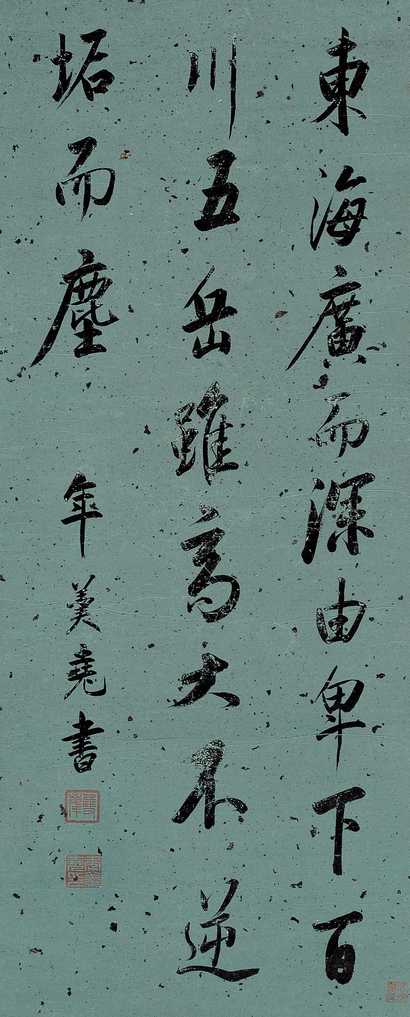 東海廣而深由卑下百
川五岳雖高大不逆
垢而塵
年羹堯書